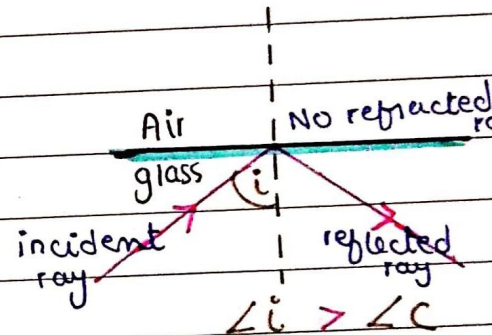 Air
No refracted
glass
i
incident
ray
reflected
ray
∠i > ∠c